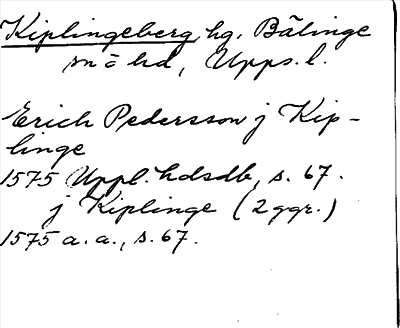 Kiplingeberg hg, Bälinge
sn o hd, Upps. l.
Erich Pedersson j Kip-
linge
1575 Uppl. hdsdb, s. 67.
j Kiplinge (2 ggr.)
1575 a. a., s. 67.